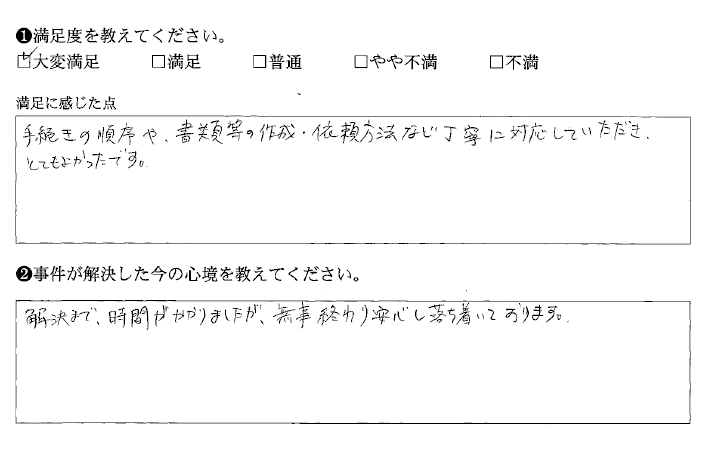 ❶満足度を教えてください。
☑大変満足 □満足 □普通 □やや不満 □不満
満足に感じた点
手続きの順序や、書類等の作成・依頼方法など丁寧に対応していただき、
とてもよかったです。
❷事件が解決した今の心境を教えてください。
解決まで、時間がかかりましたが、無事終わり安心し落ち着いております。